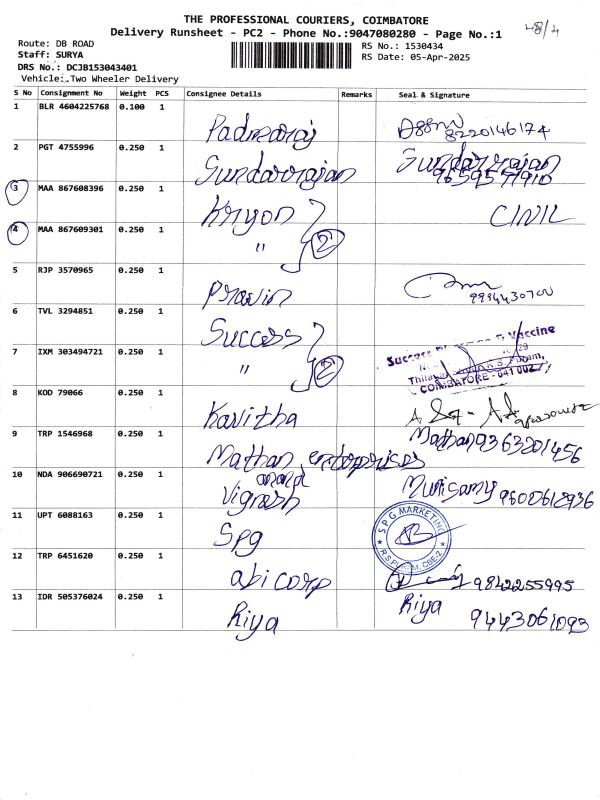 THE PROFESSIONAL COURIERS, COIMBATORE
48/4
Delivery Runsheet - PC2 - Phone No.:9047080280 - Page No.:1
Route: DB ROAD
RS No.: 1530434
Staff: SURYA
RS Date: 05-Apr-2025
DRS No.: DCJB153043401
Vehicle:.Two Wheeler Delivery
S No Consignment No Weight PCS Consignee Details Remarks Seal & Signature
1 BLR 4604225768 0.100 1 Padmaraj 8220146174
2 PGT 4755996 0.250 1 Sundarrajan Sundarrajan
9659571910
3 MAA 867608396 0.250 1 Kryon CIVIL
4 MAA 867609301 0.250 1 " 2
5 RJP 3570965 0.250 1 Pravin
6 TVL 3294851 0.250 1 Success
7 IXM 303494721 0.250 1 " 2
Success Vaccine
COIMBATORE - 641 002
8 KOD 79066 0.250 1 Kavitha
9 TRP 1546968 0.250 1 Mathan enterprises Mathan 9363201456
10 NDA 906690721 0.250 1 anand
Vignesh Munisamy 9600612936
11 UPT 6088163 0.250 1 Spg
S.P.G MARKETING
R.S.PURAM, CBE-2
12 TRP 6451620 0.250 1 abi corp 9842255995
13 IDR 505376024 0.250 1 Riya Riya 9443061093